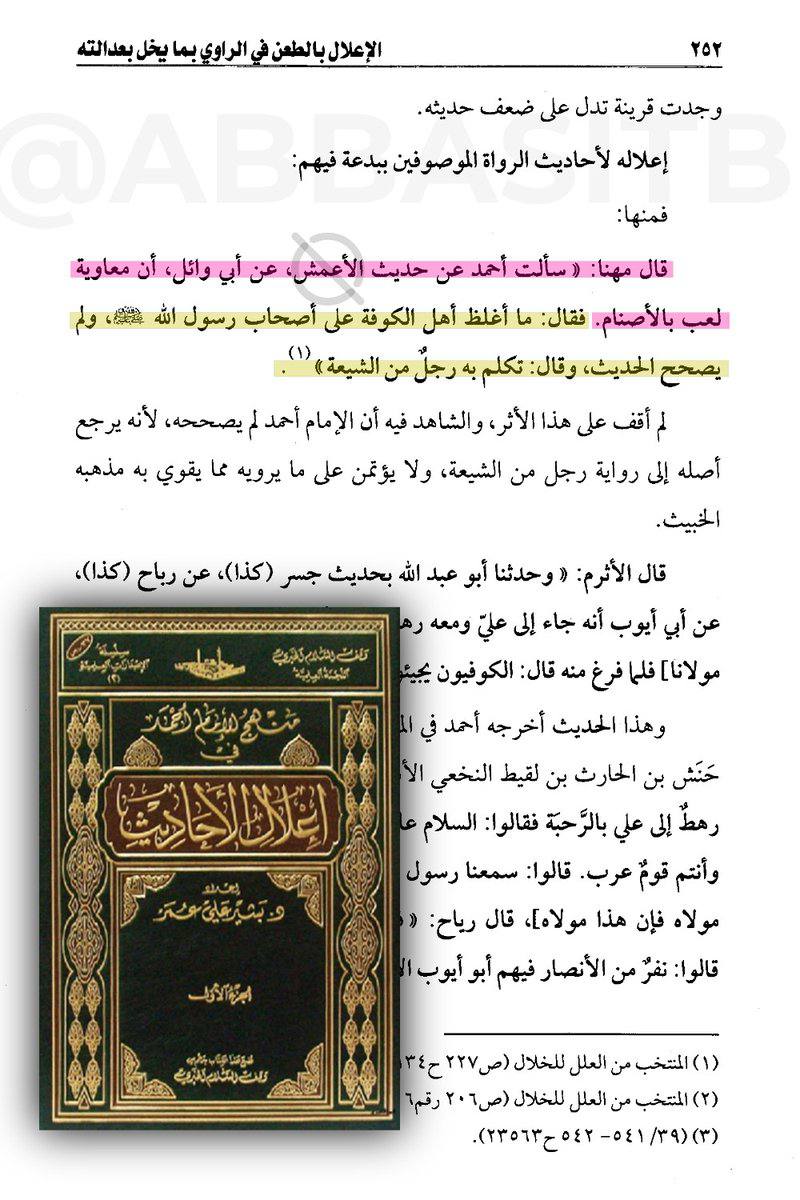 ٢٥٢
الإعلال بالطعن في الراوي بما يخل بعدالته
@ABBASITB
وجدت قرينة تدل على ضعف حديثه.
إعلاله لأحاديث الرواة الموصوفين ببدعة فيهم:
فمنها:
قال مهنا: « سألت أحمد عن حديث الأعمش، عن أبي وائل، أن معاوية
لعب بالأصنام. فقال: ما أغلظ أهل الكوفة على أصحاب رسول الله ﷺ، ولم
يصحح الحديث، وقال: تكلم به رجلٌ من الشيعة»(١).
لم أقف على هذا الأثر، والشاهد فيه أن الإمام أحمد لم يصححه، لأنه يرجع
أصله إلى رواية رجل من الشيعة، ولا يؤتمن على ما يرويه مما يقوي به مذهبه
الخبيث.
قال الأثرم: « وحدثنا أبو عبد الله بحديث جسر (كذا)، عن رباح (كذا)،
عن أبي أيوب أنه جاء إلى عليّ ومعه
مولانا] فلما فرغ منه قال: الكوفيون
وهذا الحديث أخرجه أحمد في
حَنَش بن الحارث بن لقيط النخعي
رهطٌ إلى علي بالرَّحبَة فقالوا: السلام
وأنتم قومٌ عرب. قالوا: سمعنا رسول
مولاه فإن هذا مولاه]، قال رياح: «
قالوا: نفرٌ من الأنصار فيهم أبو أيوب
(١) المنتخب من العلل للخلال (ص٢٢٧
(٢) المنتخب من العلل للخلال (ص٢٠٦ رقم
(٣) (٣٩/ ٥٤١- ٥٤٢ ح٢٣٥٦٣).
سلسلة
(٢)
منهج الإمام أحمد
في
إعلال الأحاديث
إعداد
د. بشير علي عمر
الجزء الأول